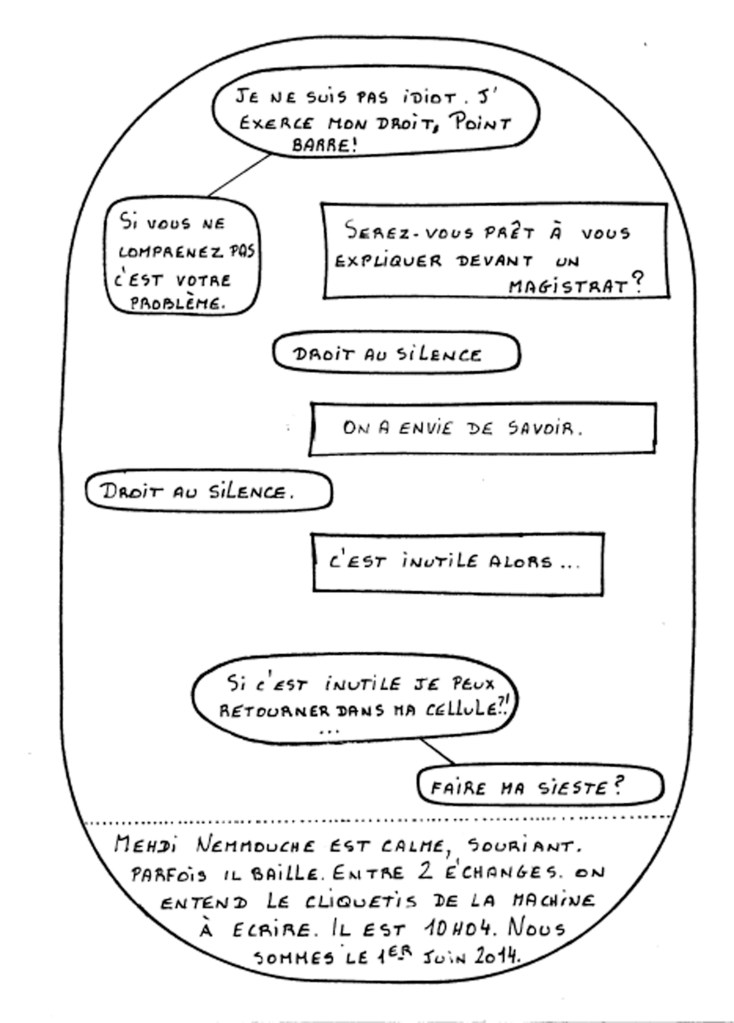 JE NE SUIS PAS IDIOT. J'
EXERCE MON DROIT, POINT
BARRE!
SI VOUS NE
COMPRENEZ PAS
C'EST VOTRE
PROBLÈME.
SEREZ-VOUS PRÊT À VOUS
EXPLIQUER DEVANT UN
MAGISTRAT?
DROIT AU SILENCE
ON A ENVIE DE SAVOIR.
DROIT AU SILENCE.
C'EST INUTILE ALORS...
SI C'EST INUTILE JE PEUX
RETOURNER DANS MA CELLULE?!
...
FAIRE MA SIESTE?
MEHDI NEMMOUCHE EST CALME, SOURIANT.
PARFOIS IL BAILLE. ENTRE 2 ÉCHANGES. ON
ENTEND LE CLIQUETIS DE LA MACHINE
À ECRIRE. IL EST 10H04. NOUS
SOMMES LE 1ER JUIN 2014.